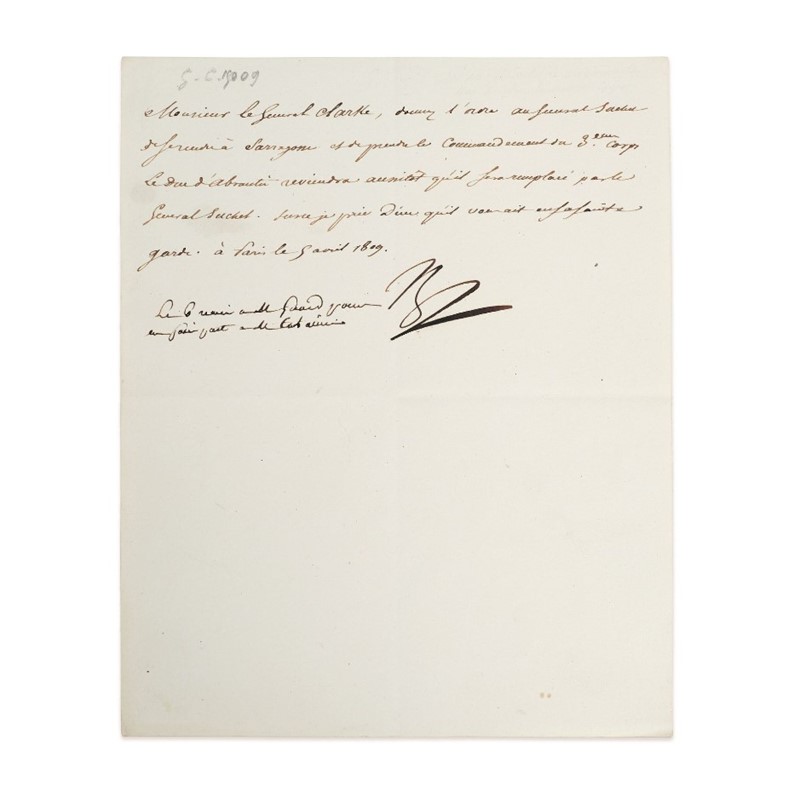 Monsieur le General Clarke, donnez l'ordre au General Suchet
de se rendre à Sarragosse et de prendre le Commandement du 3.eme corps
Le Duc d'Abrantès reviendra aussitot qu'il sera remplacé par le
General Suchet. Surce je prie Dieu qu'il vous ait en sa sainte
garde. à Paris le 5 avril 1809.
Le 6 a M Gerard pour
en faire part a M